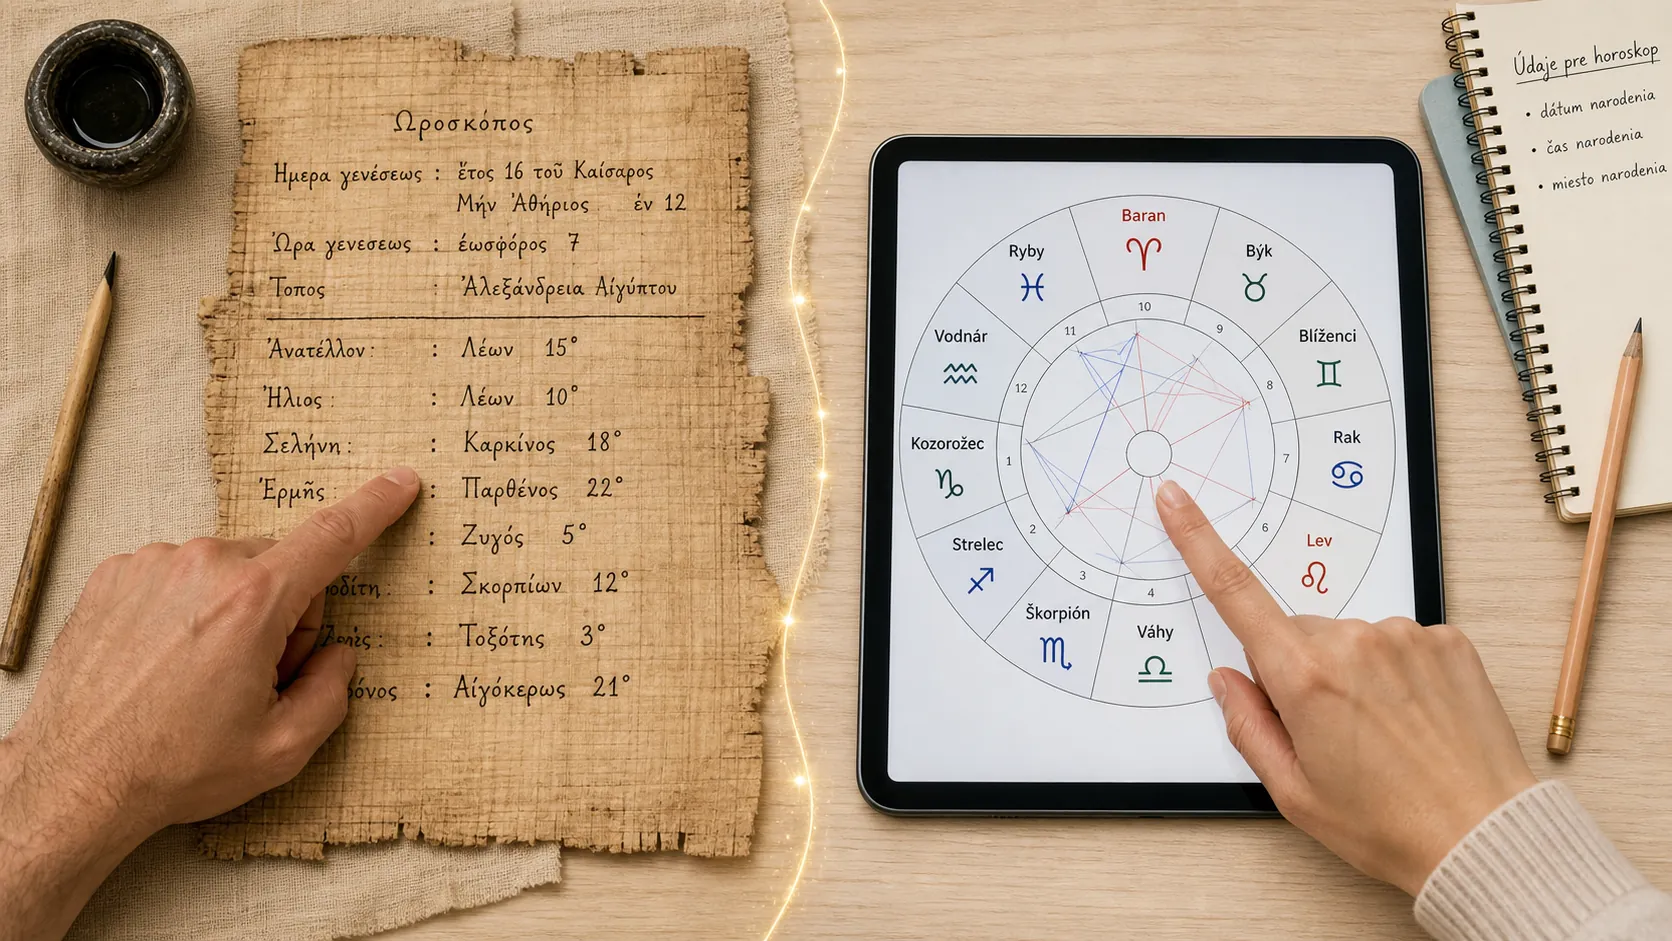 Ωροσκόπος
Ημερα γενέσεως : ἔτος 16 τοῦ Καίσαρος
Μήν Ἀθήριος ἐν 12
Ὥρα γενεσεως : ἑωσφόρος 7
Τοπος : Ἀλεξάνδρεια Αἰγύπτου
Ἀνατέλλον : : Λέων 15°
Ἥλιος : : Λέων 10°
Σελήνη : : Καρκίνος 18°
Ἑρμῆς : : Παρθένος 22°
: Ζυγός 5°
: Σκορπίων 12°
: Τοξότης 3°
: Αἰγόκερως 21°
Baran
Býk
Blíženci
Rak
Lev
Váhy
Škorpión
Strelec
Kozorožec
Vodnár
Ryby
10
9
8
7
6
4
3
2
1
12
11
Údaje pre horoskop
• dátum narodenia
• čas narodenia
• miesto narodenia